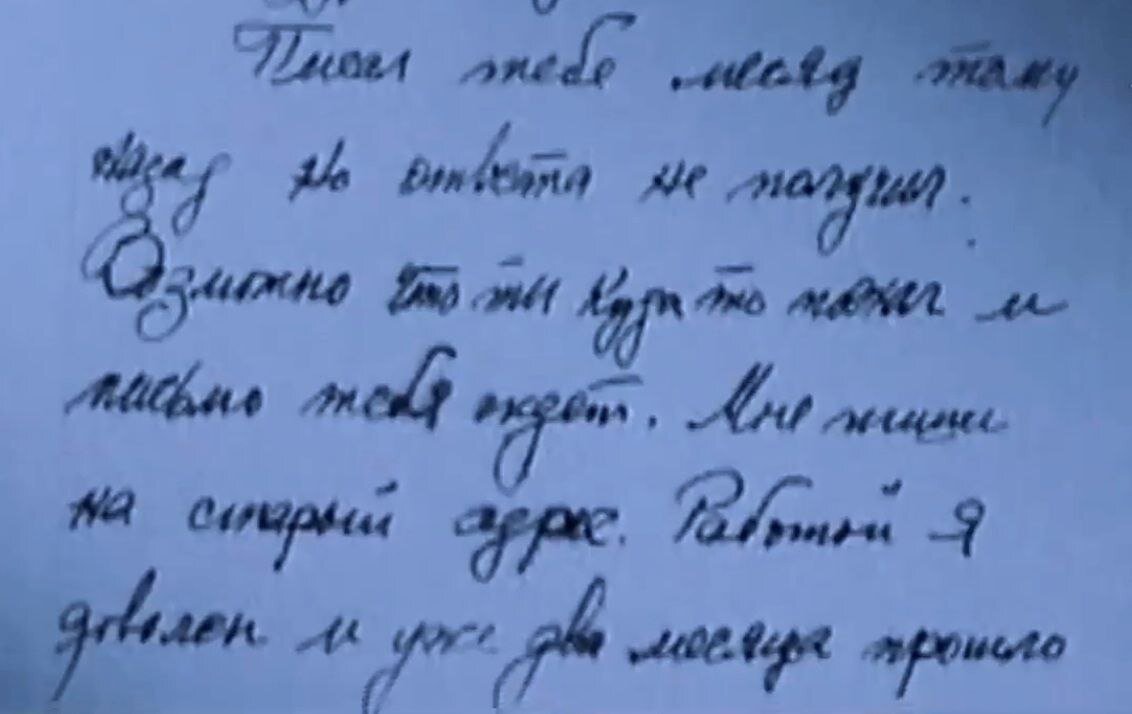 Писал тебе месяц тому
назад но ответа не получил.
Возможно что ты куда то поехал и
письмо тебя ждёт. Мне пиши
на старый адрес. Работой я
доволен и уже два месяца прошло